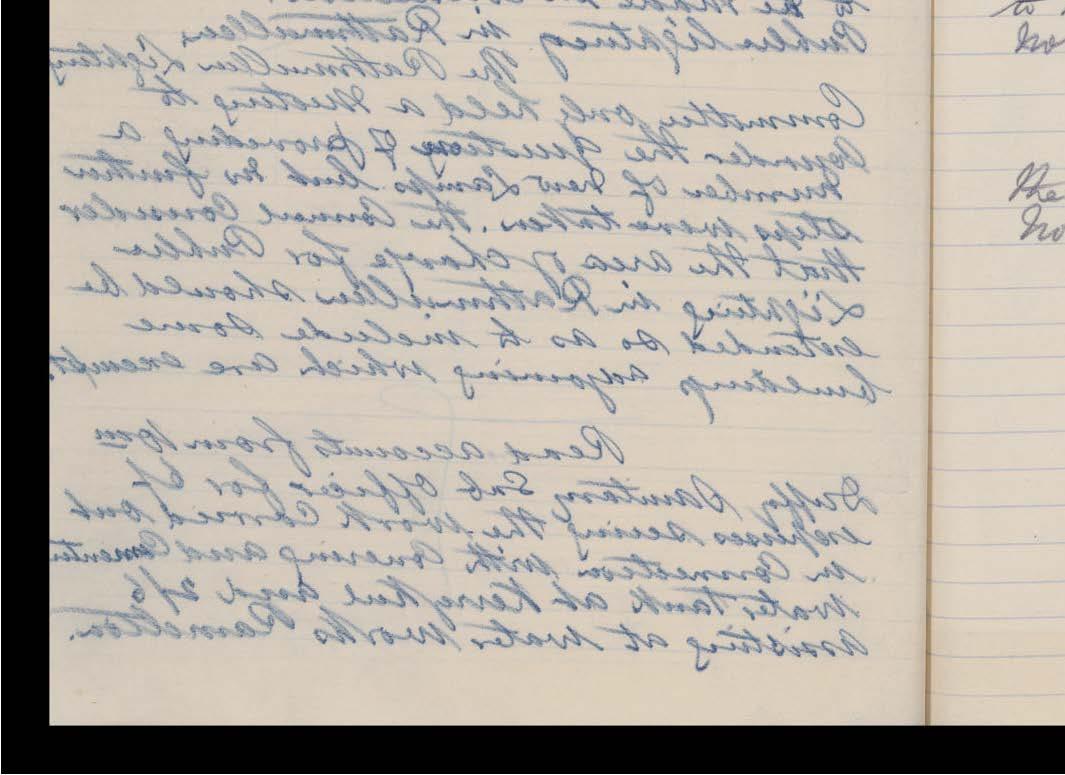 to be made
Public lighting in Rathmullen
The Rathmullen Lighting
Committee only held a meeting to
Consider the question of providing a
number of new Lamps but no further
steps were taken. The Council Consider
that the area of charge for Public
Lighting in Rathmullen should be
extended so as to include some
buildings adjoining which are exempt.
Read accounts from
Duffy Sanitary Sub Officer for
expenses seeing the work Carried out
in Connection with Covering and Cementing
Water Tank at Kerrykeel and 2/6
assisting at Water Works Ramelton.
to
No
the
No